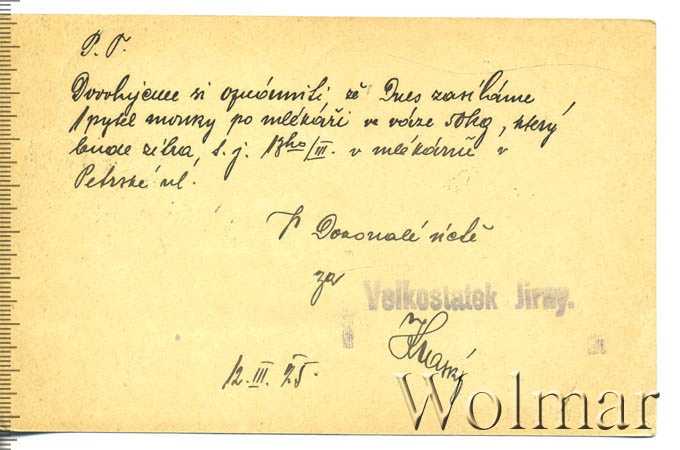 P. T.
Dovolujeme si oznámiti že Dnes zasíláme
1 pytel mouky po mlékaři ve váze 50 kg, který
bude zítra, t. j. 13ho/III. v mlékárně v
Petrské ul.
V Dokonalé úctě
za
Velkostatek Jirny.
12. III. 25.
Wolmar